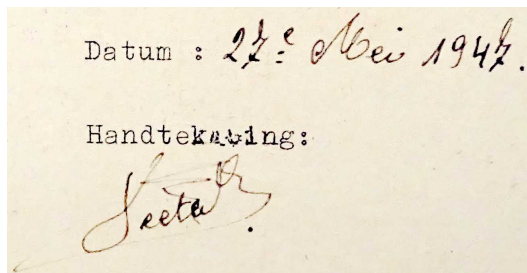 Datum : 27e Mei 1947.
Handtekening: